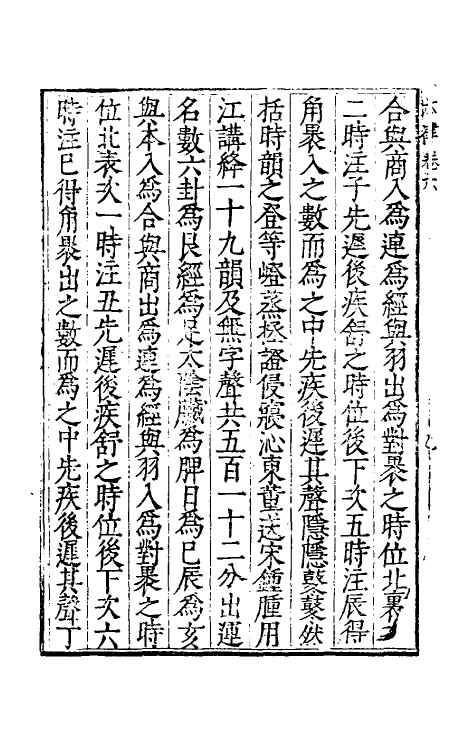 合與商入為運為經與羽出為對晷之時位北裏次
二時注子先遲後疾舒之時位後下次五時注辰得
角晷入之數而為之中先疾後遲其聲隱隱鼕鼕然
括時韻之登等嶝蒸拯證侵寢沁東董送宋鍾腫用
江講絳一十九韻及無字聲共五百一十二分出運
名數六封為艮經為足太陰臟為脾日為巳辰為亥
與本入為合與商出為運為經與羽入為對晷之時
位北表次一時注丑先遲後疾舒之時位後下次六
時注巳得角晷出之數而為之中先疾後遲其聲丁
律卷六